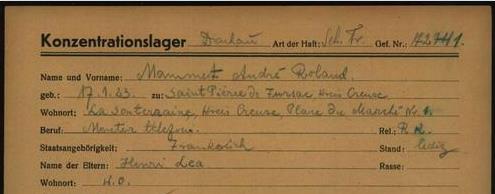 Konzentrationslager Dachau Art der Haft: Sch. Fr. Gef. Nr.: 72741.
Name und Vorname: Mammet André Roland.
geb.: 17.1.23. zu: Saint Pierre de Fursac, Kreis Creuse
Wohnort: La Souterraine, Kreis Creuse, Place du Marché Nr. 1.
Beruf: Monteur Rel.: R.K.
Staatsangehörigkeit: Frankreich Stand: ledig
Name der Eltern: Henri Lea Rasse:
Wohnort: w.o.